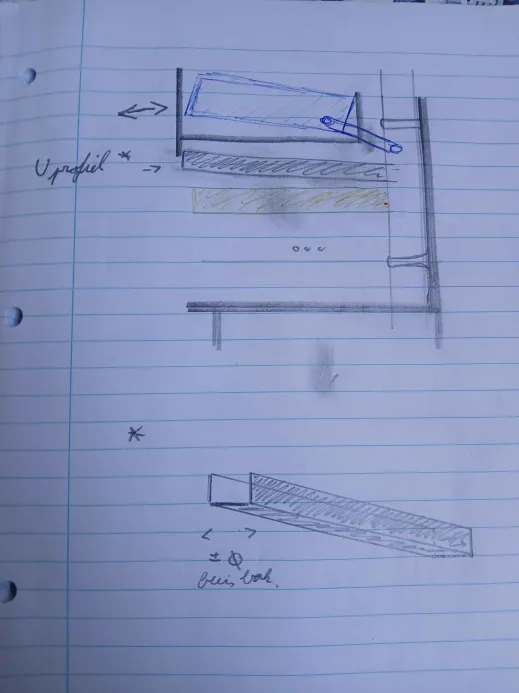 U profiel *
*
± Ø
buis bak.